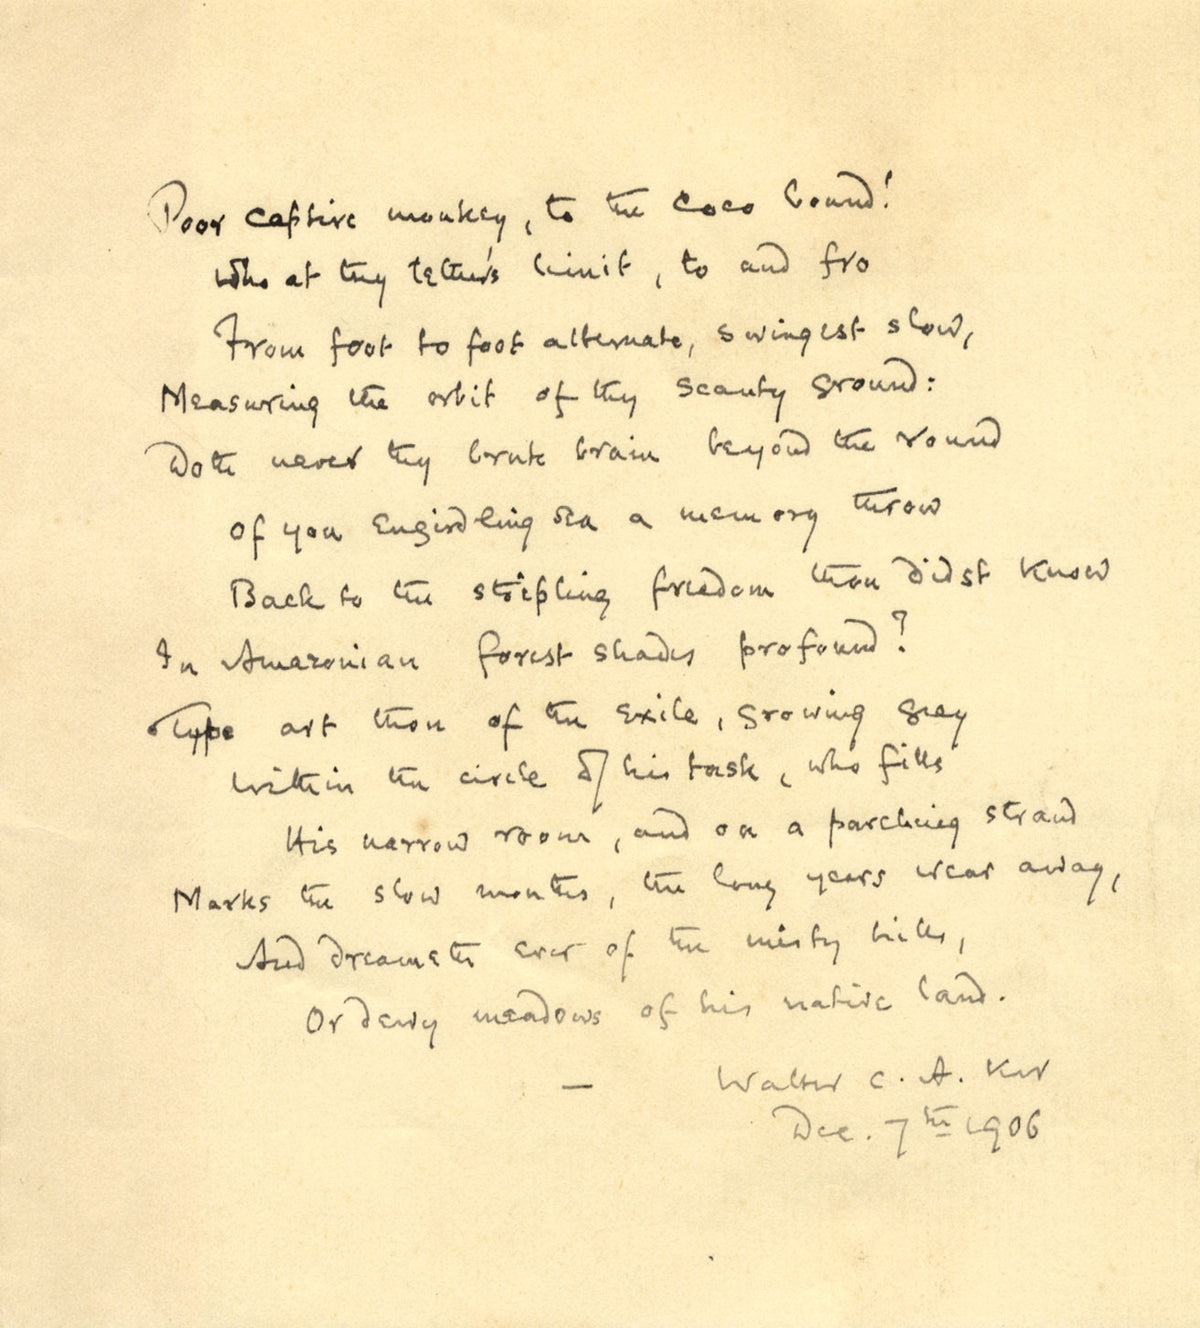 Poor captive monkey, to the Coco bound!
Who at thy tether's limit, to and fro
From foot to foot alternate, swingest slow,
Measuring the orbit of thy scanty ground:
Doth never thy brute brain beyond the round
Of yon engirdling sea a memory throw
Back to the stripling freedom thou didst know
In Amazonian forest shades profound?
Type art thou of the exile, growing grey
Within the circle of his task, who fills
His narrow room, and on a parching strand
Marks the slow months, the long years wear away,
And dreameth ever of the misty hills,
Or dewy meadows of his native land.
— Walter C. A. Ker
Dec. 7th 1906